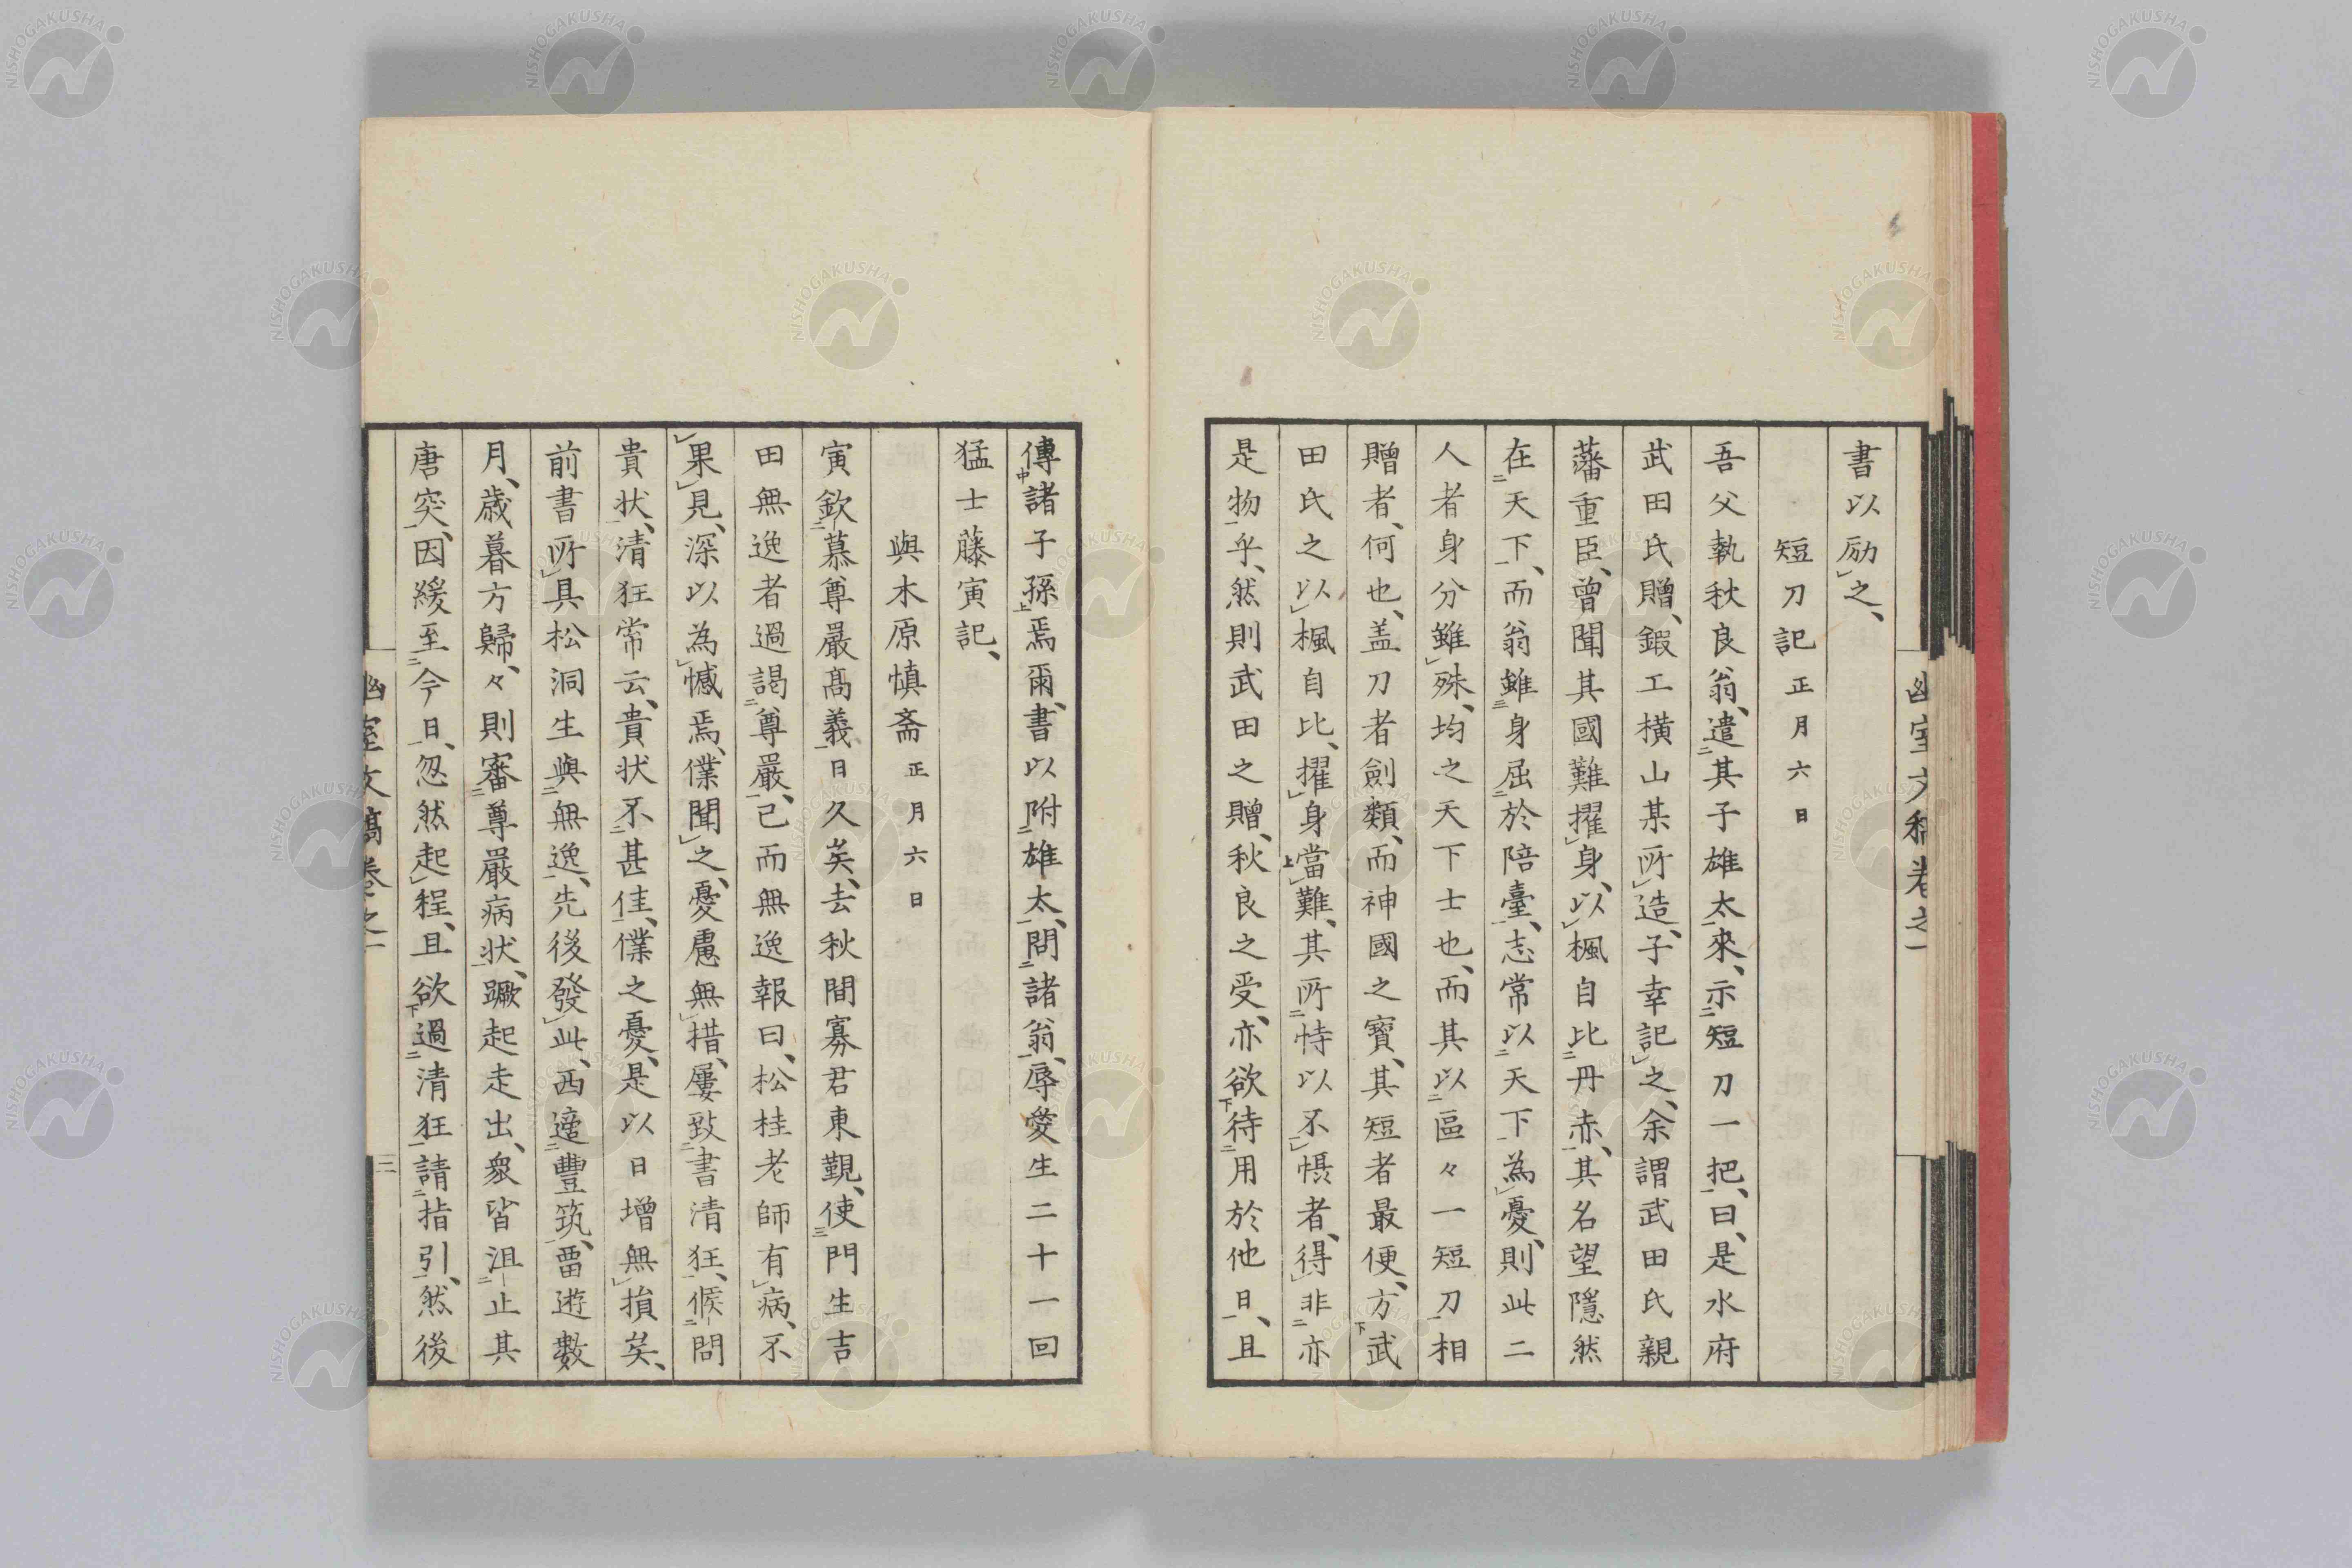 書以励之、
短刀記 正月六日
吾父執秋良翁、遣其子雄太來、示短刀一把、曰、是水府
武田氏贈、鍜工橫山某所造、子幸記之、余謂武田氏親
藩重臣、曾聞其國難擢身、以楓自比丹赤、其名望隱然
在天下、而翁雖身屈於陪臺、志常以天下為憂、則此二
人者身分雖殊、均之天下士也、而其以區々一短刀相
贈者、何也、盖刀者劍類、而神國之寶、其短者最便、方武
田氏之以楓自比、擢身當難、其所恃以不慑者、得非亦
是物乎、然則武田之贈、秋良之受、亦欲待用於他日、且
幽室文稿卷之一
傳諸子孫焉爾、書以附雄太、問諸翁、辱愛生二十一回
猛士藤寅記、
與木原慎斎 正月六日
寅欽慕尊嚴髙義日久矣、去秋間寡君東覲、使門生吉
田無逸者過謁尊嚴、已而無逸報曰、松桂老師有病、不
果見、深以為憾焉、僕聞之、憂慮無措、屢致書清狂、候問
貴状、清狂常云、貴状不甚佳、僕之憂、是以日增無損矣、
前書所具松洞生與無逸、先後發此、西適豐筑、畱遊數
月、歳暮方歸、々則審尊嚴病状、蹶起走出、衆皆沮止其
唐突、因緩至今日、忽然起程、且欲過清狂請指引、然後
幽室文稿卷之一
三
NISHOGAKUSHA